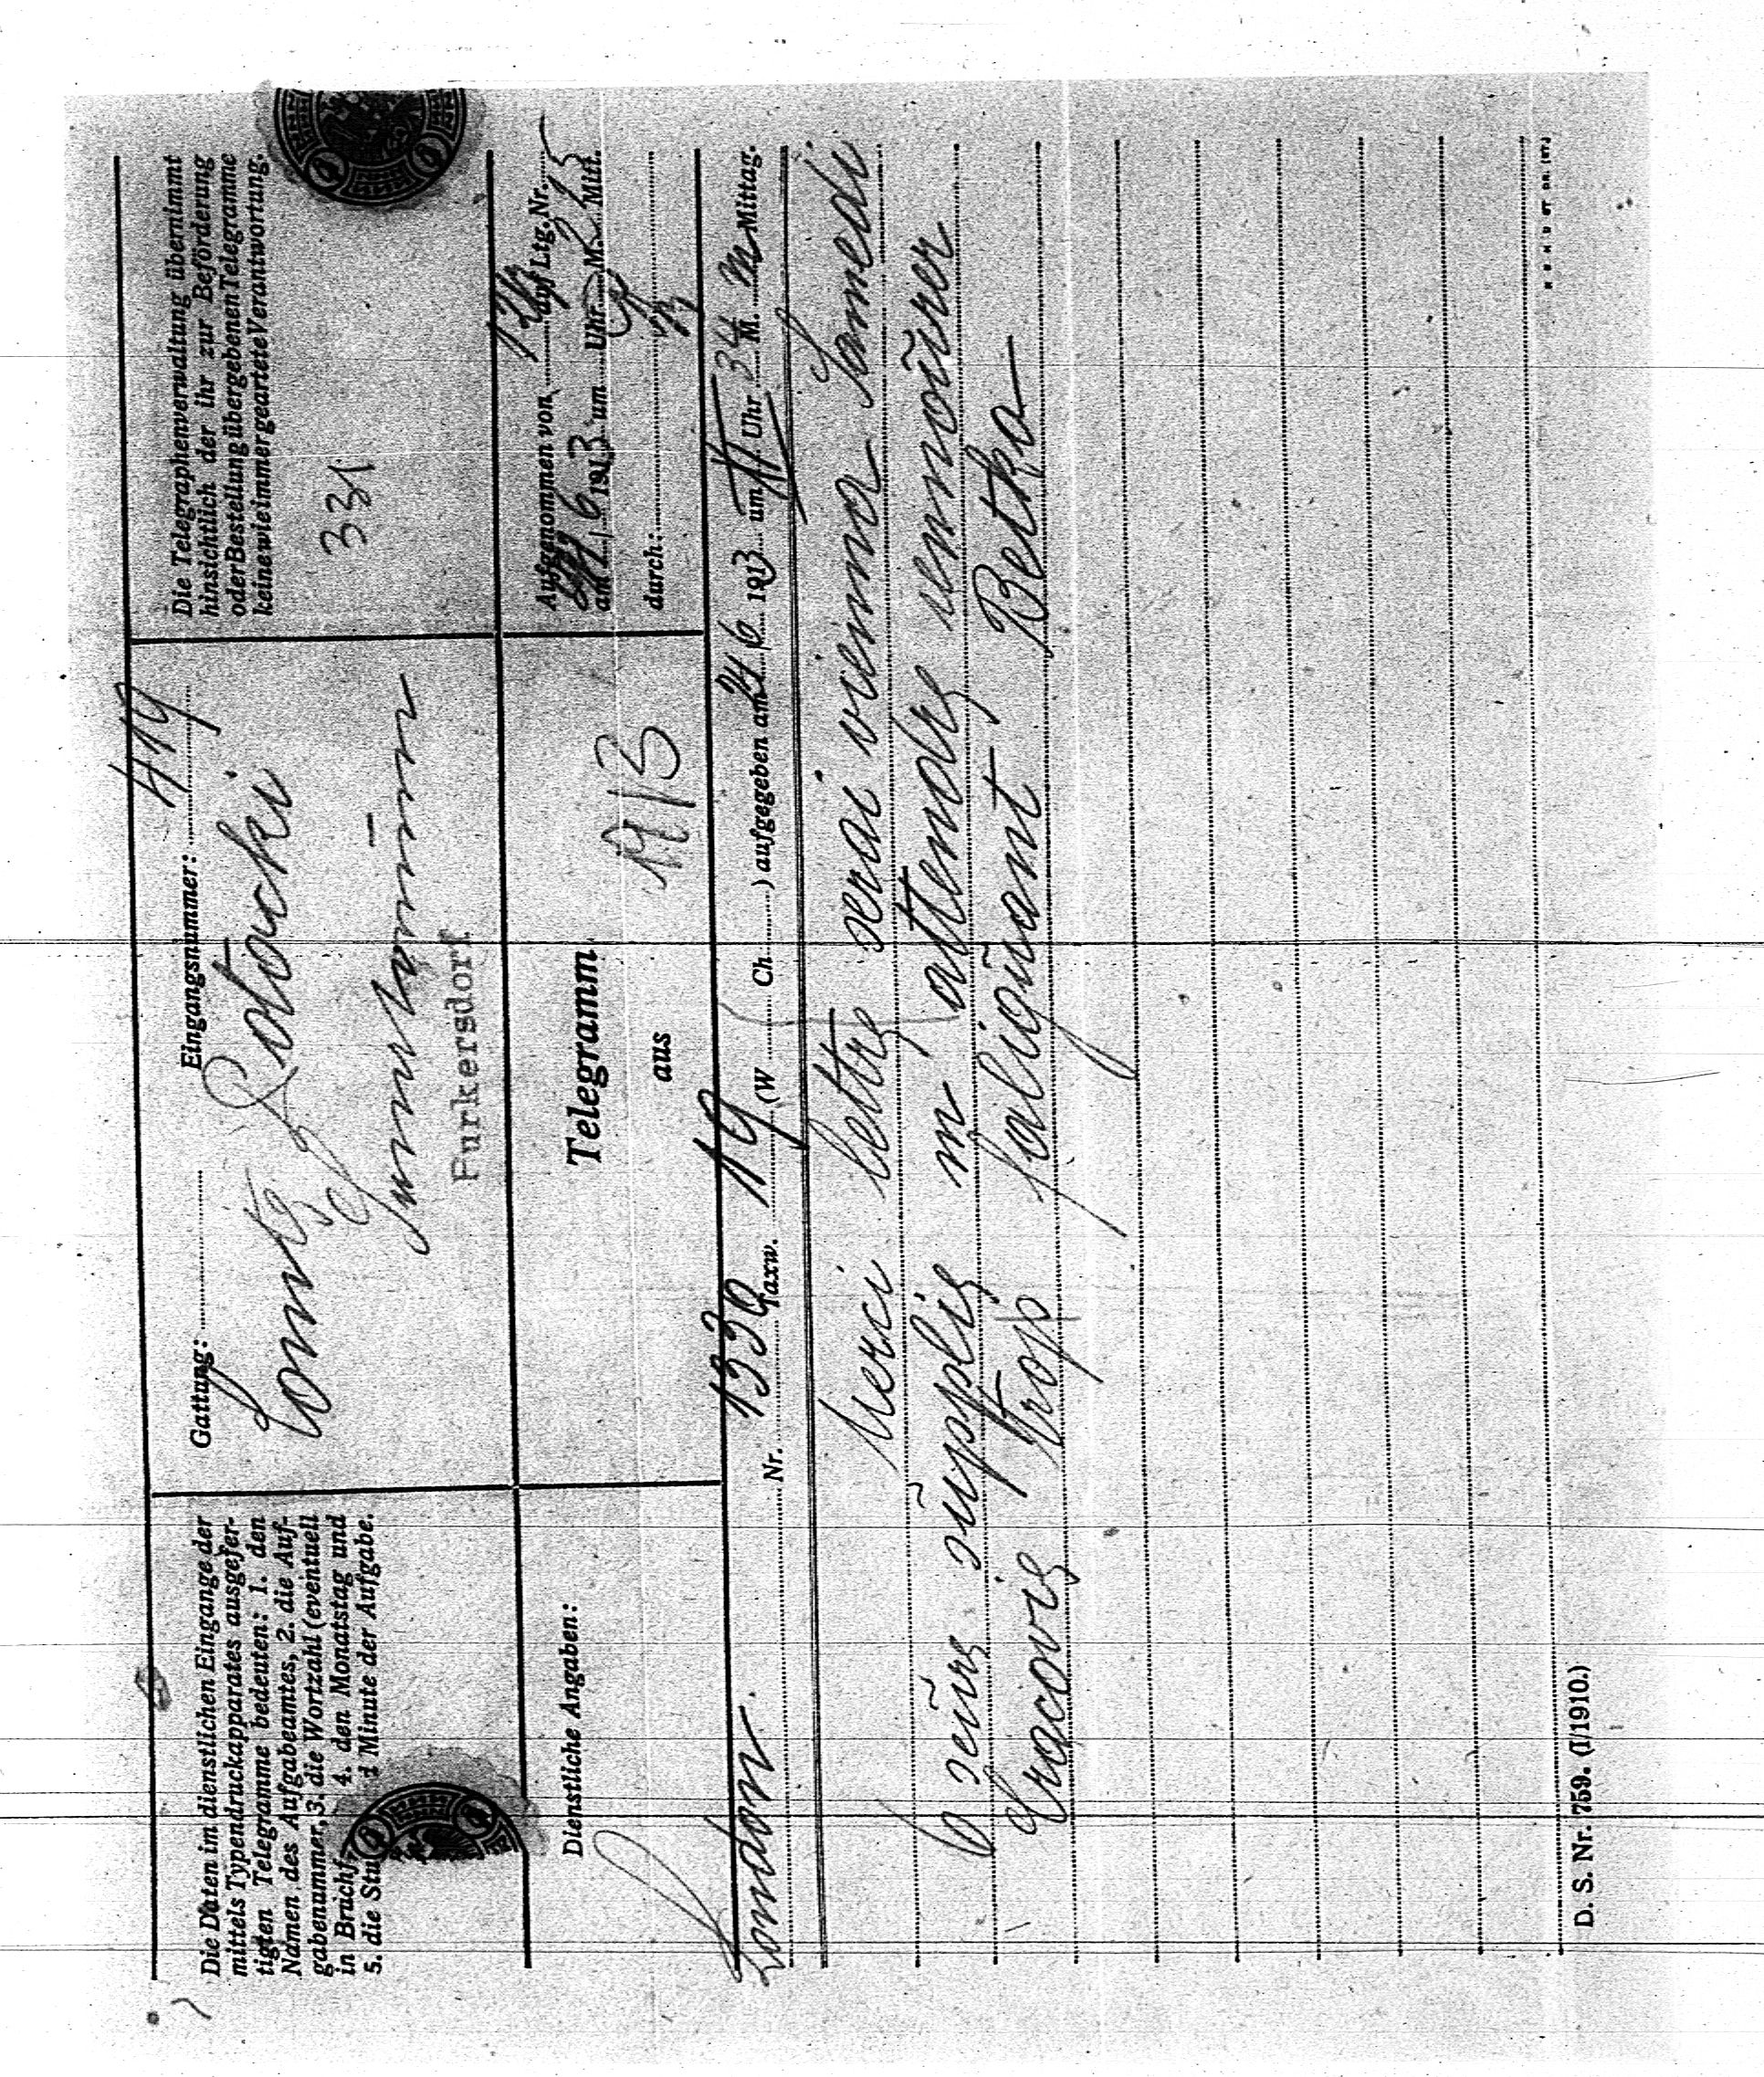 Die Daten im dienstlichen Eingange der
mittels Typendruckapparates ausgefer-
tigten Telegramme bedeuten: 1. den
Namen des Aufgabeamtes, 2. die Auf-
gabenummer, 3. die Wortzahl (eventuell
in Bruchf 4. den Monatstag und
5. die Stu d Minute der Aufgabe.
Gattung:
Eingangsnummer: 419
Comte Potocki
Purkersdorf
Die Telegraphenverwaltung übernimmt
hinsichtlich der ihr zur Beförderung
oder Bestellung übergebenen Telegramme
keine wie immer geartete Verantwortung.
331
Dienstliche Angaben:
Telegramm
aus
Aufgenommen von Ltg. Nr.
am 6 1913 um Uhr M. Mitt.
durch:
London Nr. 1339 Taxw. 19 (W Ch ) aufgegeben am 24/6 1913 um 11 Uhr 34 M. m Mittag.
Merci lettre serai vienna Samedi
6 seure supplie m'attendre remmourer
Cracovie trop faliguant Betka
D. S. Nr. 759. (I/1910.)